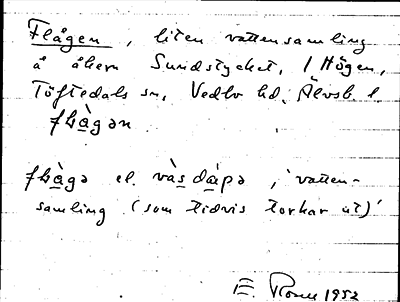 Flågen, liten vattensamling
å åkern Sundstycket, i Högen,
Töftedals sn, Vedbo hd. Älvsb. l.
flàgən
flàgə el. vàsdàpə, 'vatten-
samling (som tidvis torkar ut)'
E. 1952